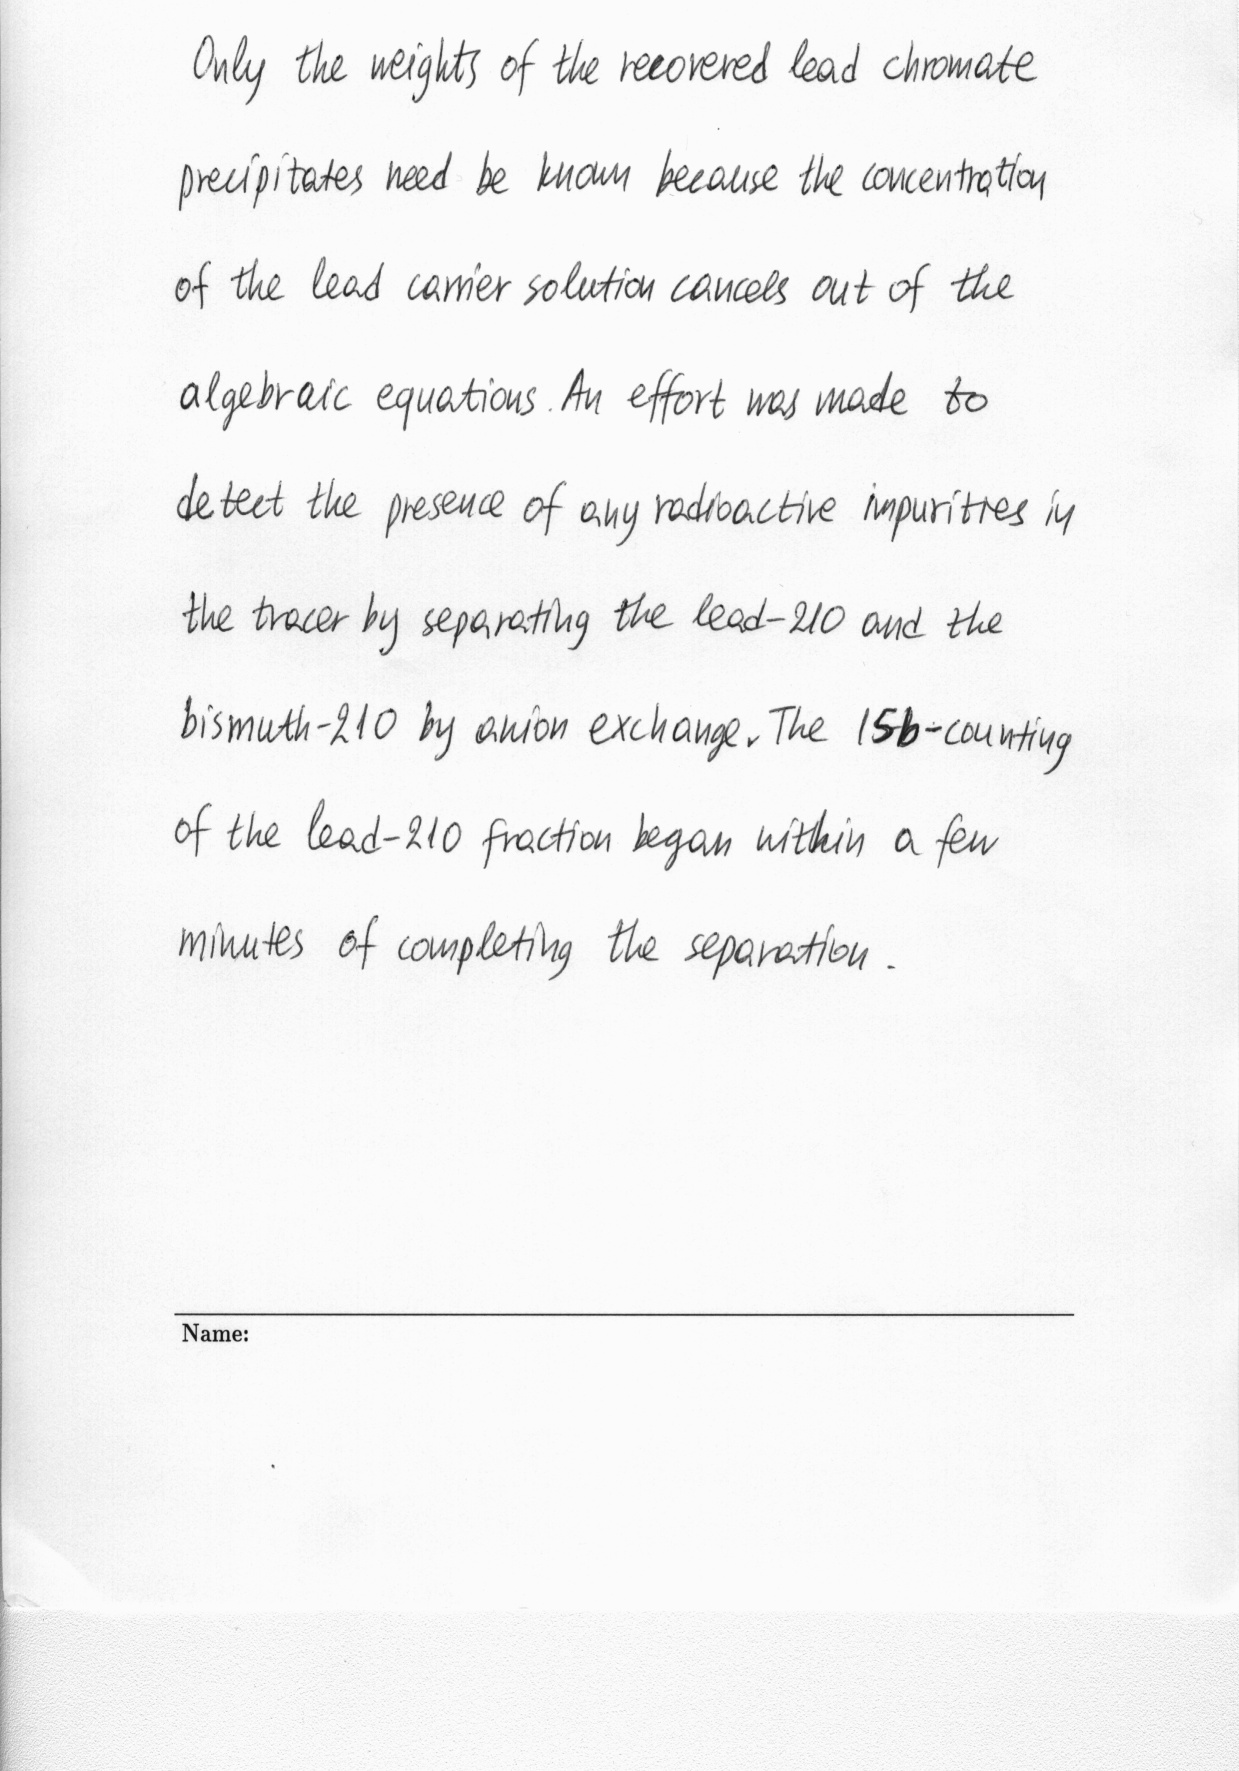 Only the weights of the recovered lead chromate
precipitates need be known because the concentration
of the lead carrier solution cancels out of the
algebraic equations. An effort was made to
detect the presence of any radioactive impurities in
the tracer by separating the lead-210 and the
bismuth-210 by anion exchange. The 15b-counting
of the lead-210 fraction began within a few
minutes of completing the separation.
Name: